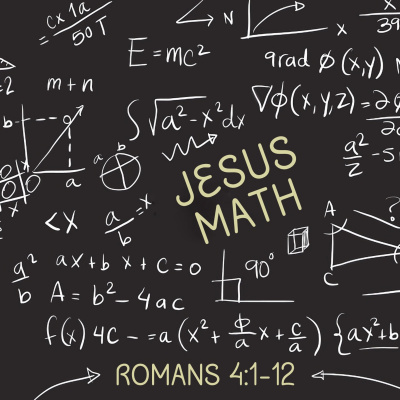 cx 1a
= 50T
N
x
x
39
E=mc²
grad φ(x,y)
=2
m+n
b
a
∫√a²-x²dx
∇φ(x,y,z)=∂φ
a b
a²/2 -5
JESUS
MATH
<x
a/b =x
A
?
C
a²/b
ax+b x+c=0
90°
A= b²-4ac
f(x)4c-=a(x²+ф/a x+c/a)
{ax²+b
ROMANS 4:1-12